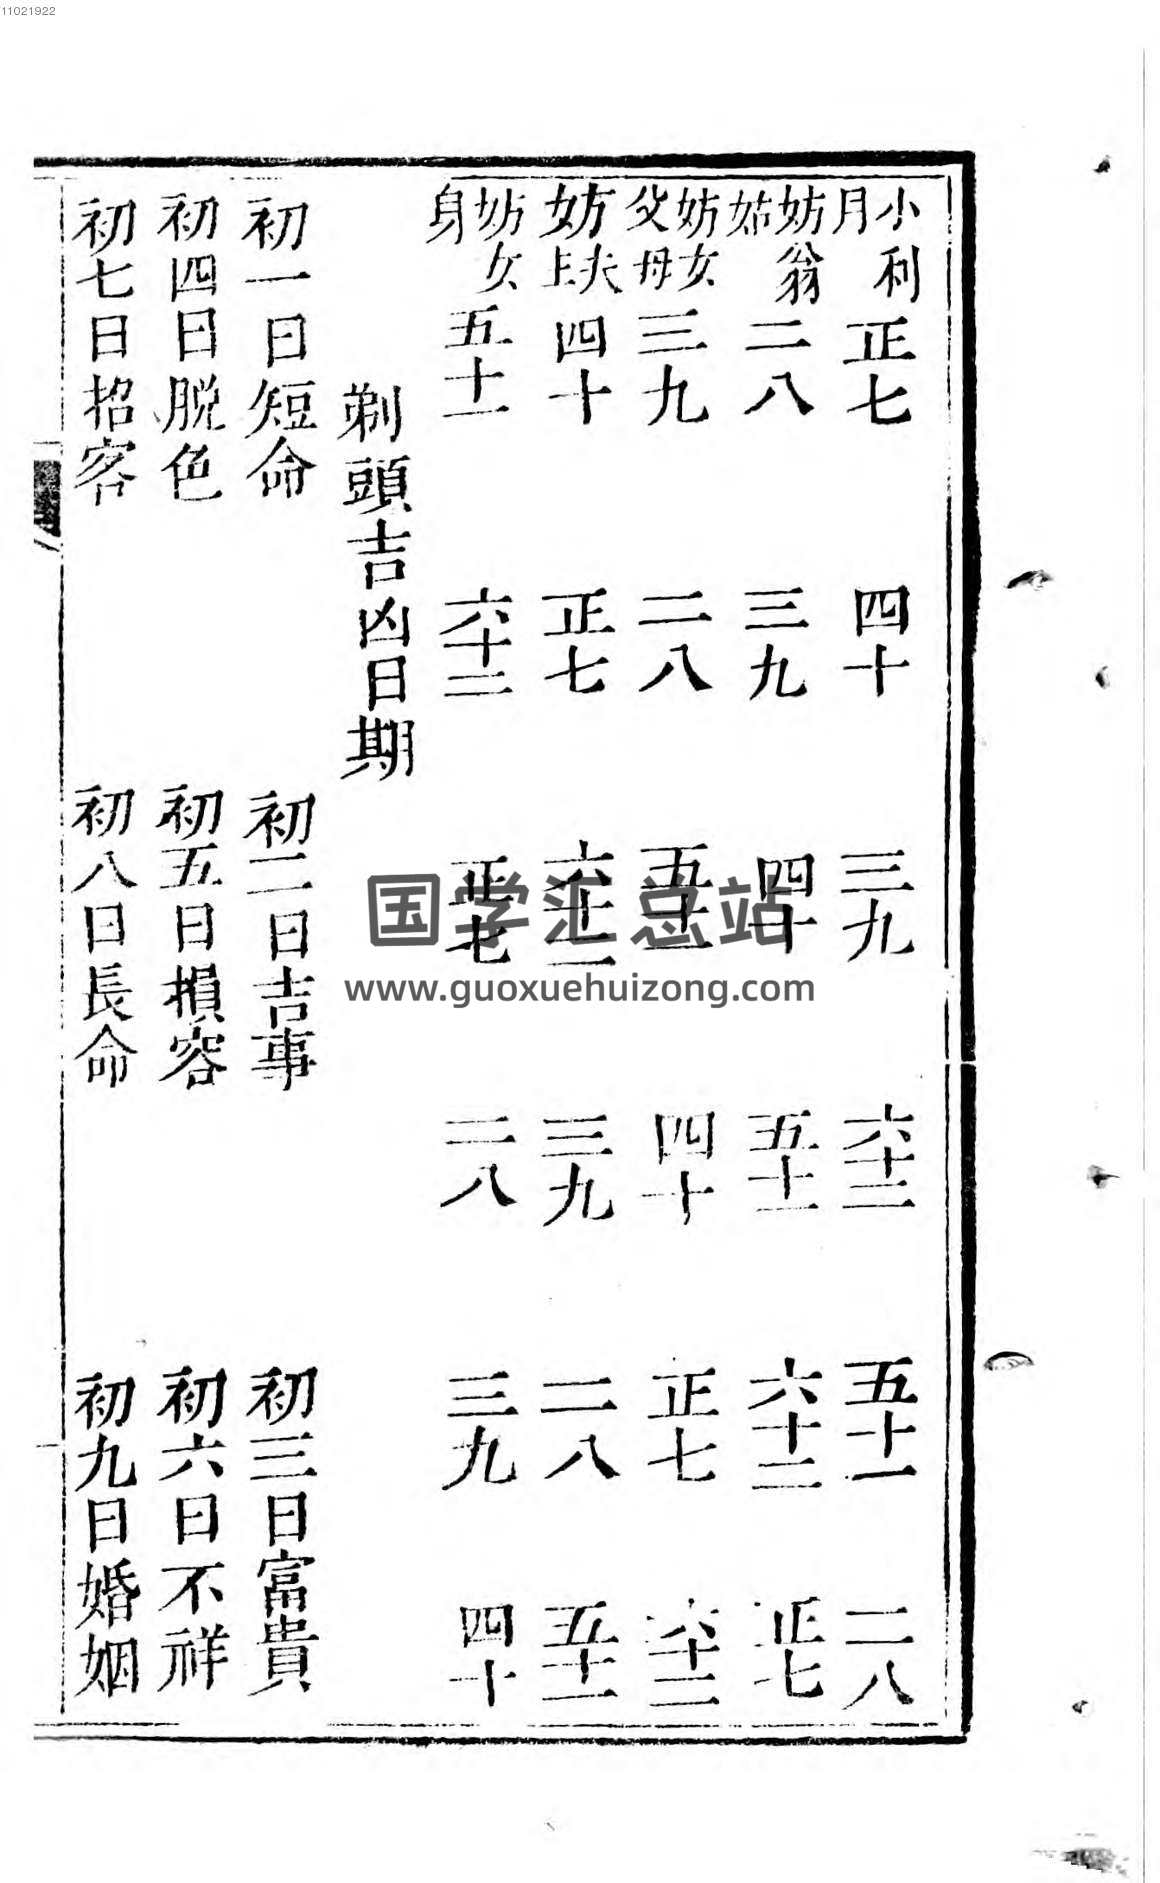 11021922
小利月 正七 四十 三九 六十二 五十一 二八
妨翁姑 二八 三九 四十 五十一 六十二 正七
妨女父母 三九 二八 五十一 四十 正七 六十二
妨夫上 四十 正七 六十二 三九 二八 五十一
妨女身 五十一 六十二 正七 二八 三九 四十
剃頭吉凶日期
初一日短命 初二日吉事 初三日富貴
初四日脱色 初五日損容 初六日不祥
初七日招客 初八日長命 初九日婚姻
国学汇总站
www.guoxuehuizong.com